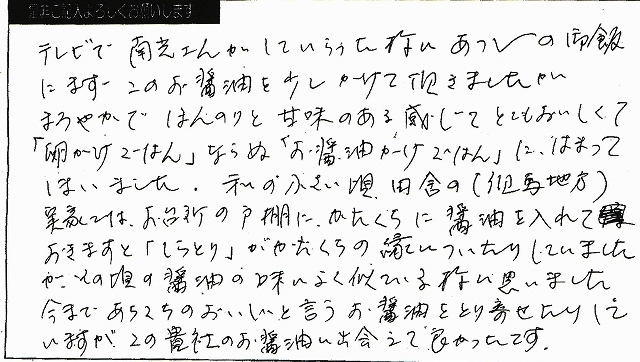 ご記入よろしくお願いします
テレビで南さんがしていらした様にあつあつの御飯
にまず このお醤油を少しかけて頂きましたが
まろやかで ほんのりと甘味のある感じで とてもおいしくて
「卵かけごはん」ならぬ「お醤油かけごはん」に、はまって
しまいました。私の小さい頃 田舎の(但馬地方)
実家では、お台所の戸棚に、かたくちに醤油を入れて
おきますと「しらとり」がかたくちの縁についたりしていました
が、その頃の醤油の味によく似ている様に思いました
今まであちこちのおいしいと言うお醤油をとり寄せたりして
いますが この貴社のお醤油に出会えて良かったです。